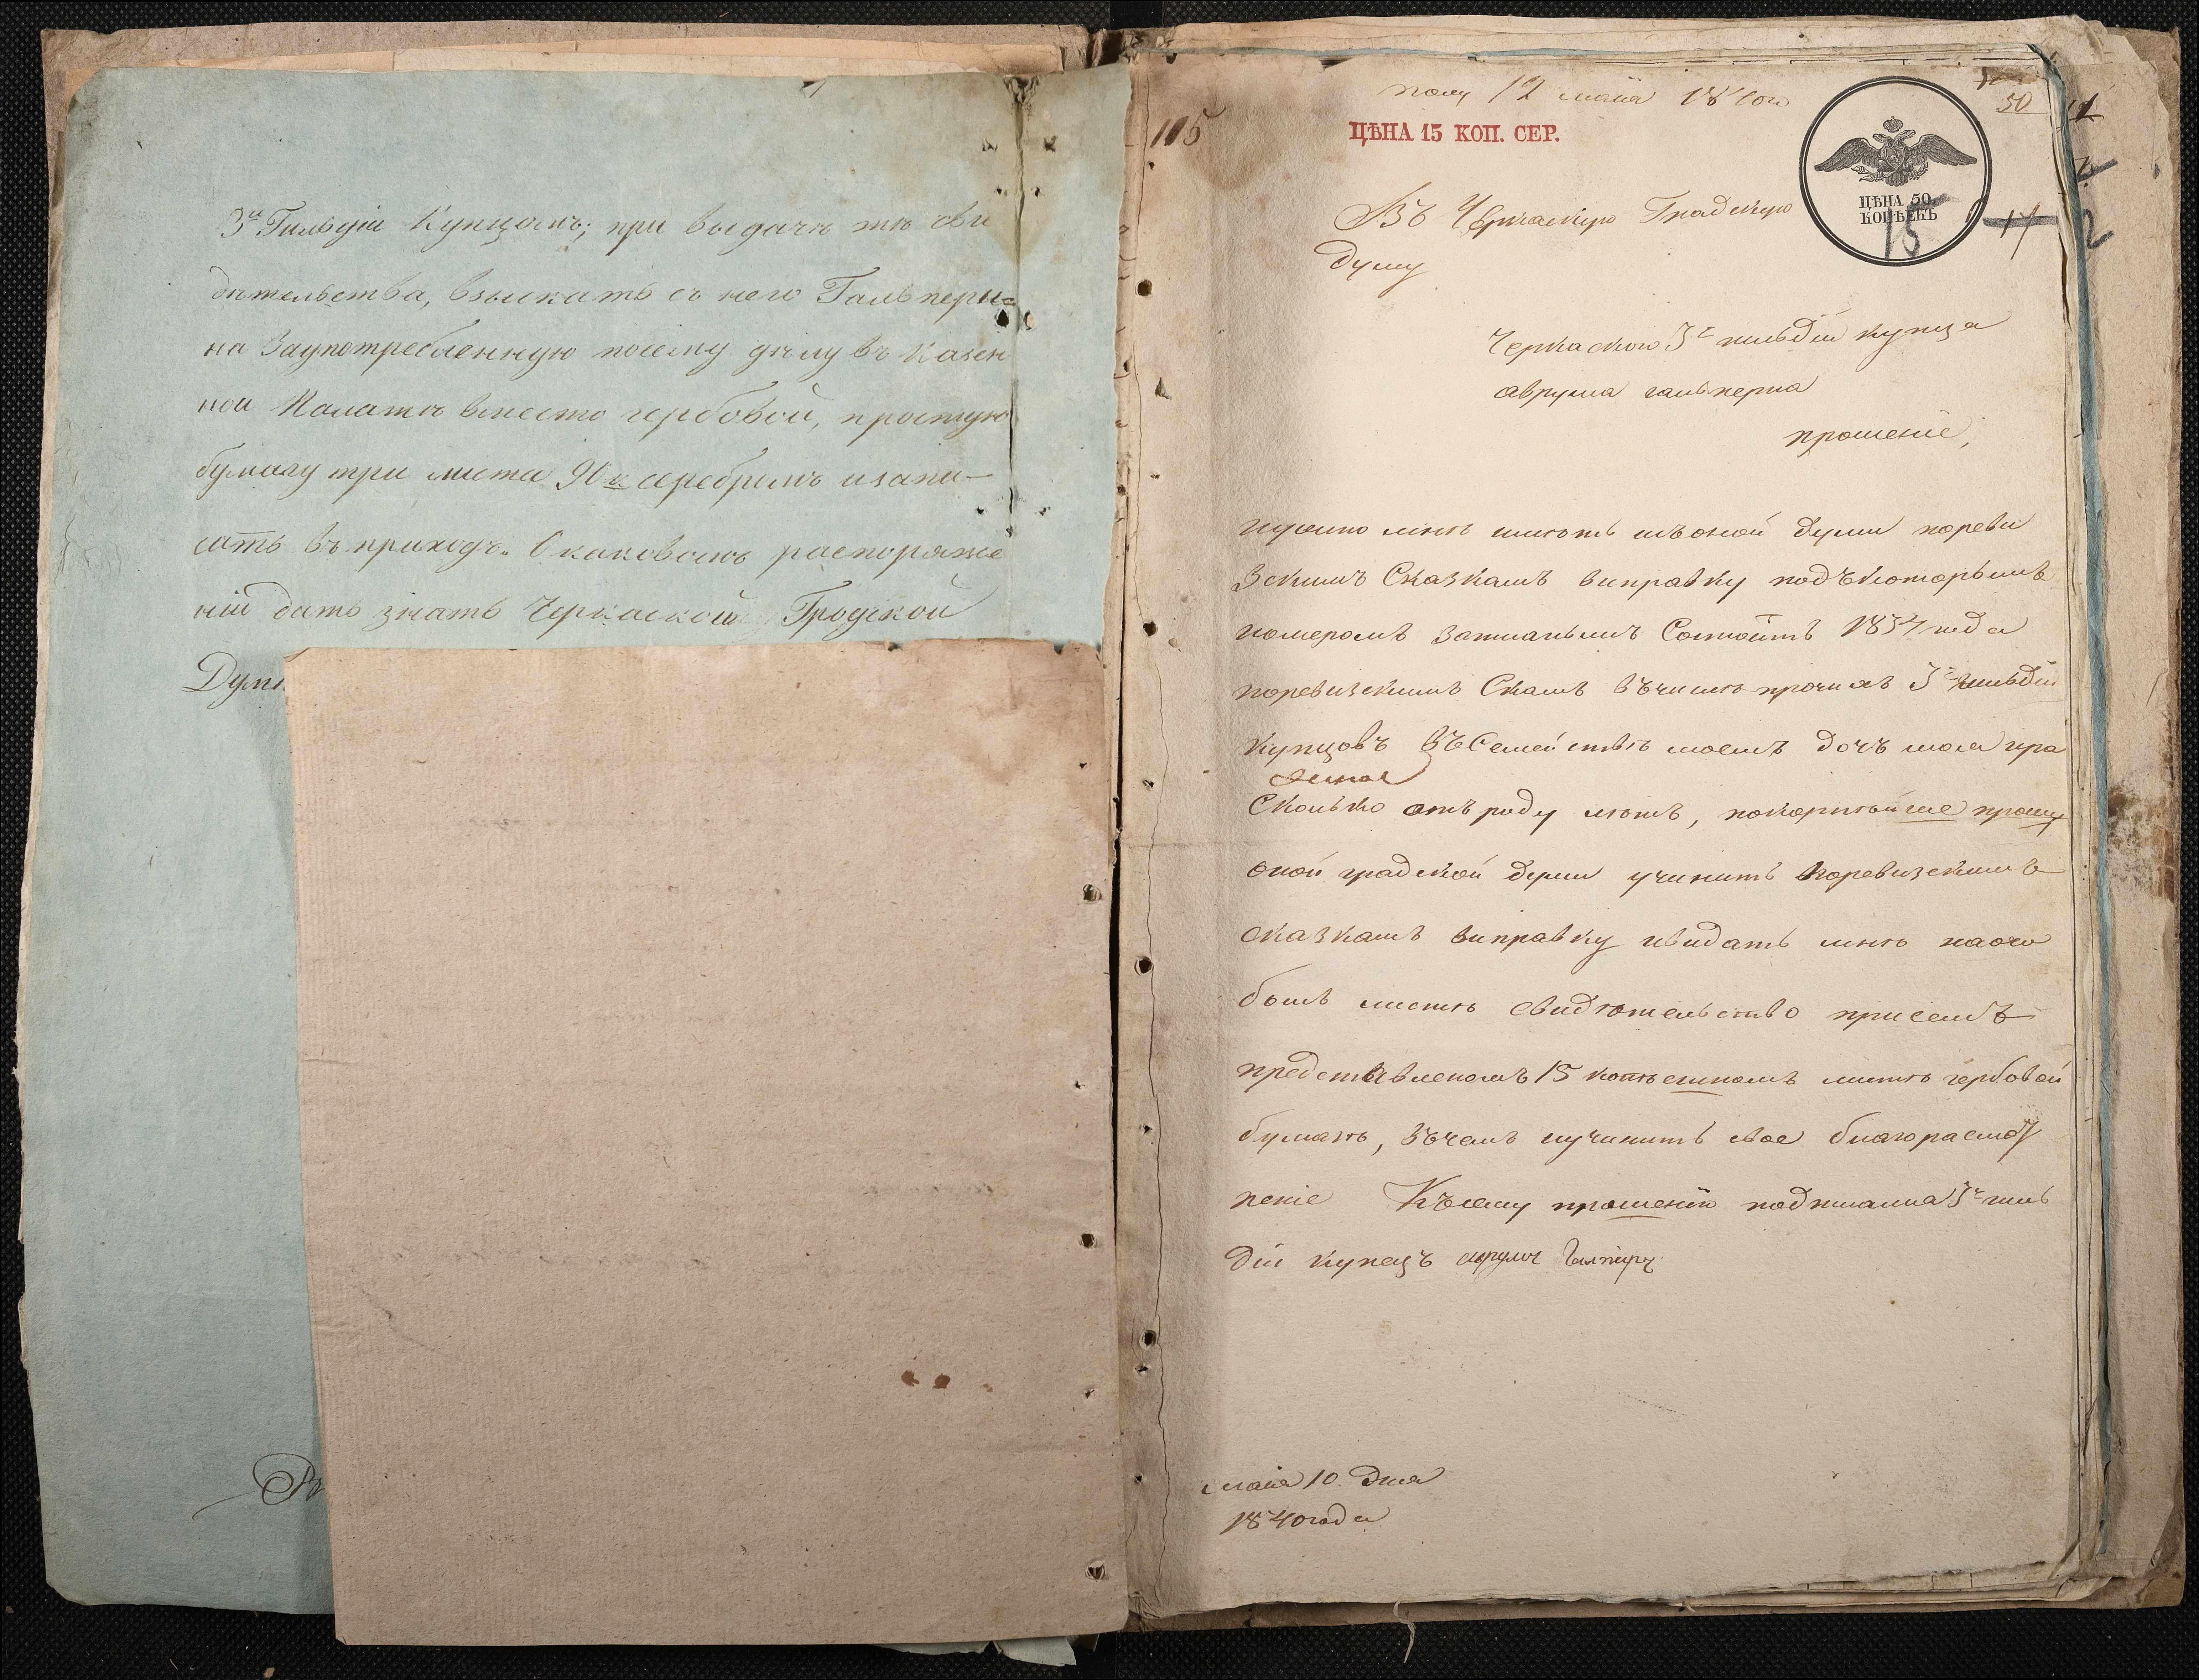 3й Гильдіи Купцомъ; при выдачѣ же сви
дѣтельства, взыскать съ него Гальпери=
на Заупотребленную посему дѣлу въ Казен
ной Палатѣ вместо гербовой, простую
бумагу три листа 90 к серебромъ изапи-
сать въ приходъ. О каковомъ распоряже
ніи дать знать Черкаской Градской
Думѣ
полу 12 маія 1840го
50
115
ЦѢНА 15 КОП. СЕР.
ЦѢНА 50
КОПѢЕКЪ
15
17
Въ Черкаскую Градскую
Думу
Черкаского 3й гильдіи купца
аврума гальперна
прошеніе,
нужно мнѣ имѣть изъоной думи пореви
зскимъ Сказкамъ виправку подъкоторымъ
номеромъ записанымъ Состоитъ 1834 года
поревизскимъ Скамъ въчислѣ прочихъ 3й гильдіи
купцовъ въСемействѣ моемъ дочъ моя
Сколько отъ роду лѣтъ, покорнѣйше прошу
оной градской думи учинить поревизскимъ
сказкамъ виправку ивидать мнѣ насего
бомъ листѣ свидѣтельство присемъ
представленомъ 15 копѣешномъ листѣ гербовой
бумагѣ, вчемъ иучинить свое благорасмот
реніе Късему прошенію подписался 3й гиль
діи купецъ аврумъ Галперн
маія 10 дня
1840 года